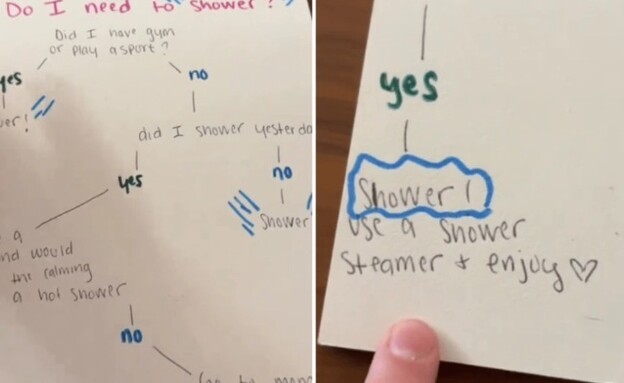 Do I need to shower?
Did I have gym
or play a sport?
yes
no
did I shower
yes
no
Shower
a
would
the calming
a hot shower
no
yes
Shower!
Use a shower
Steamer + enjoy ♡